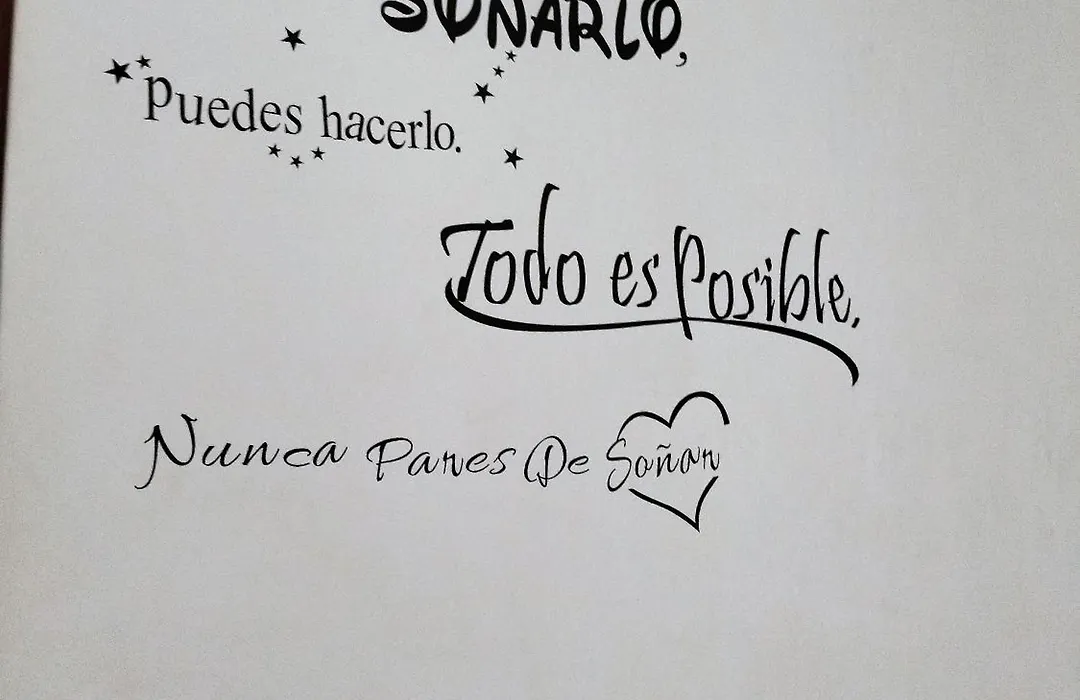 SOÑARLO,
Puedes hacerlo.
Todo es Posible.
Nunca Pares De Soñar